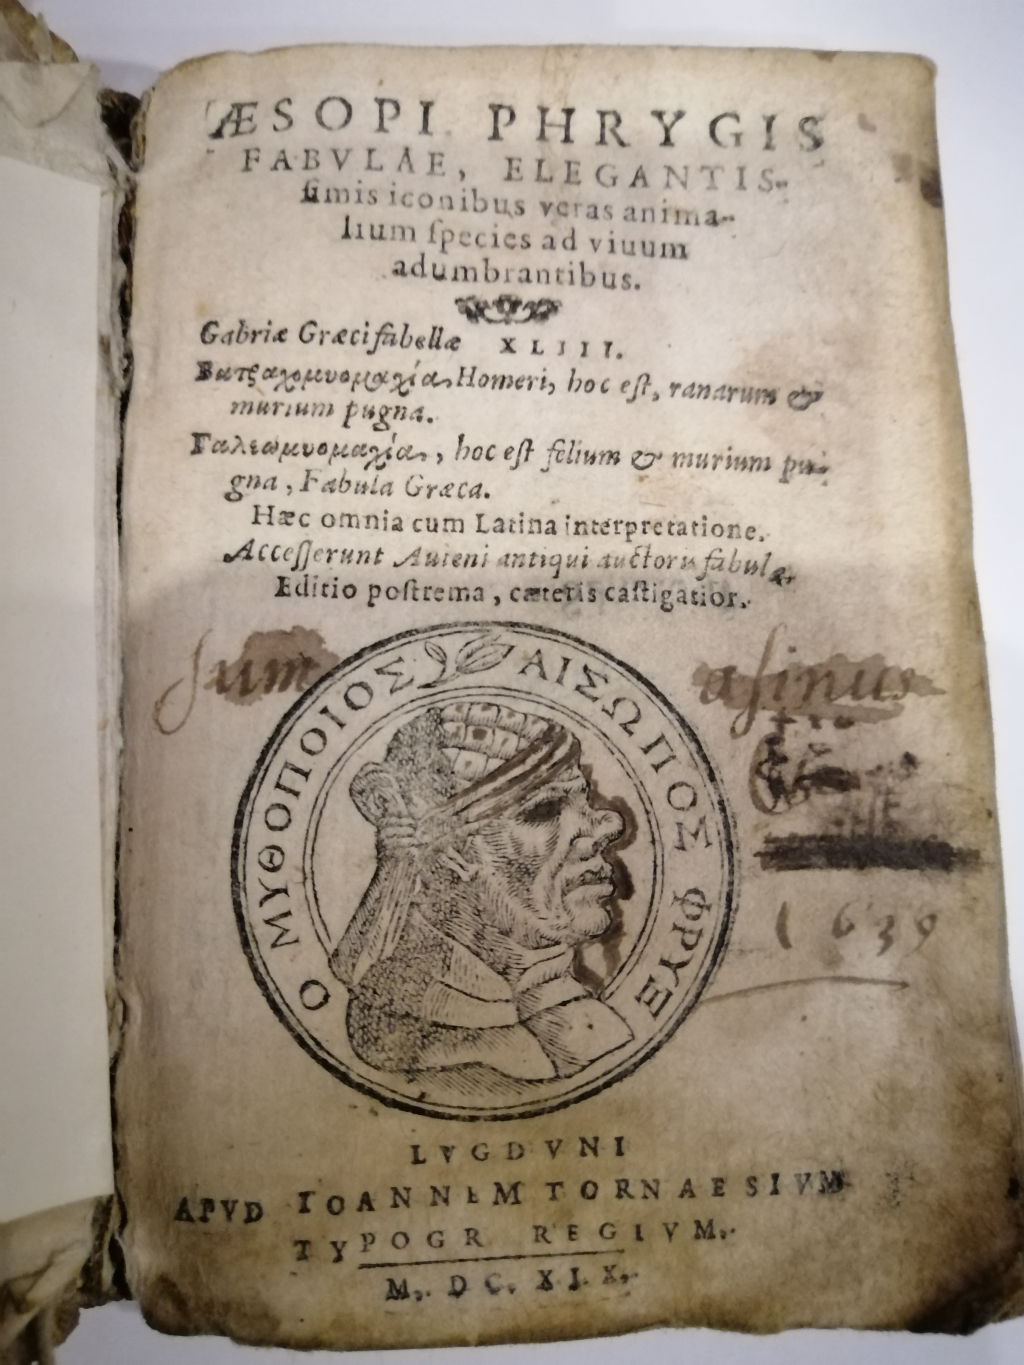 ÆSOPI PHRYGIS
FABVLAE, ELEGANTIS-
ſimis iconibus veras anima-
lium ſpecies ad viuum
adumbrantibus.
Gabriæ Græci fabellæ XLIII.
Βατραχομυομαχία, Homeri, hoc eſt, ranarum &
murium pugna.
Γαλεωμυομαχία, hoc eſt felium & murium pu-
gna, Fabula Græca.
Hæc omnia cum Latina interpretatione.
Acceſſerunt Auieni antiqui auctoris fabulæ.
Editio poſtrema, cæteris caſtigatior.
ſum aſinus
Ο ΜΥΘΟΠΟΙΟΣ ΑΙΣΩΠΟΣ ΦΡΥΞ
1639
LVGDVNI
APVD IOANNEM TORNAESIVM
TYPOGR REGIVM.
M. DC. XIX.